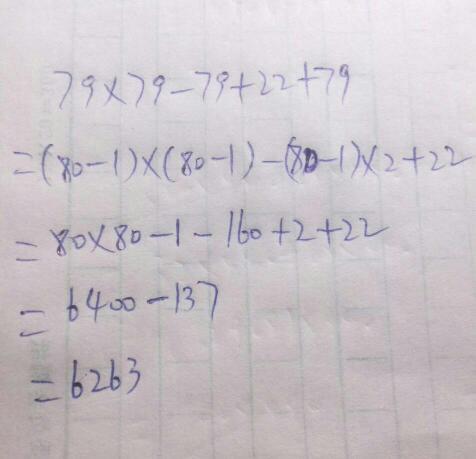 79×79-79+22+79
=(80-1)×(80-1)-(80-1)×2+22
=80×80-1-160+2+22
=6400-137
=6263